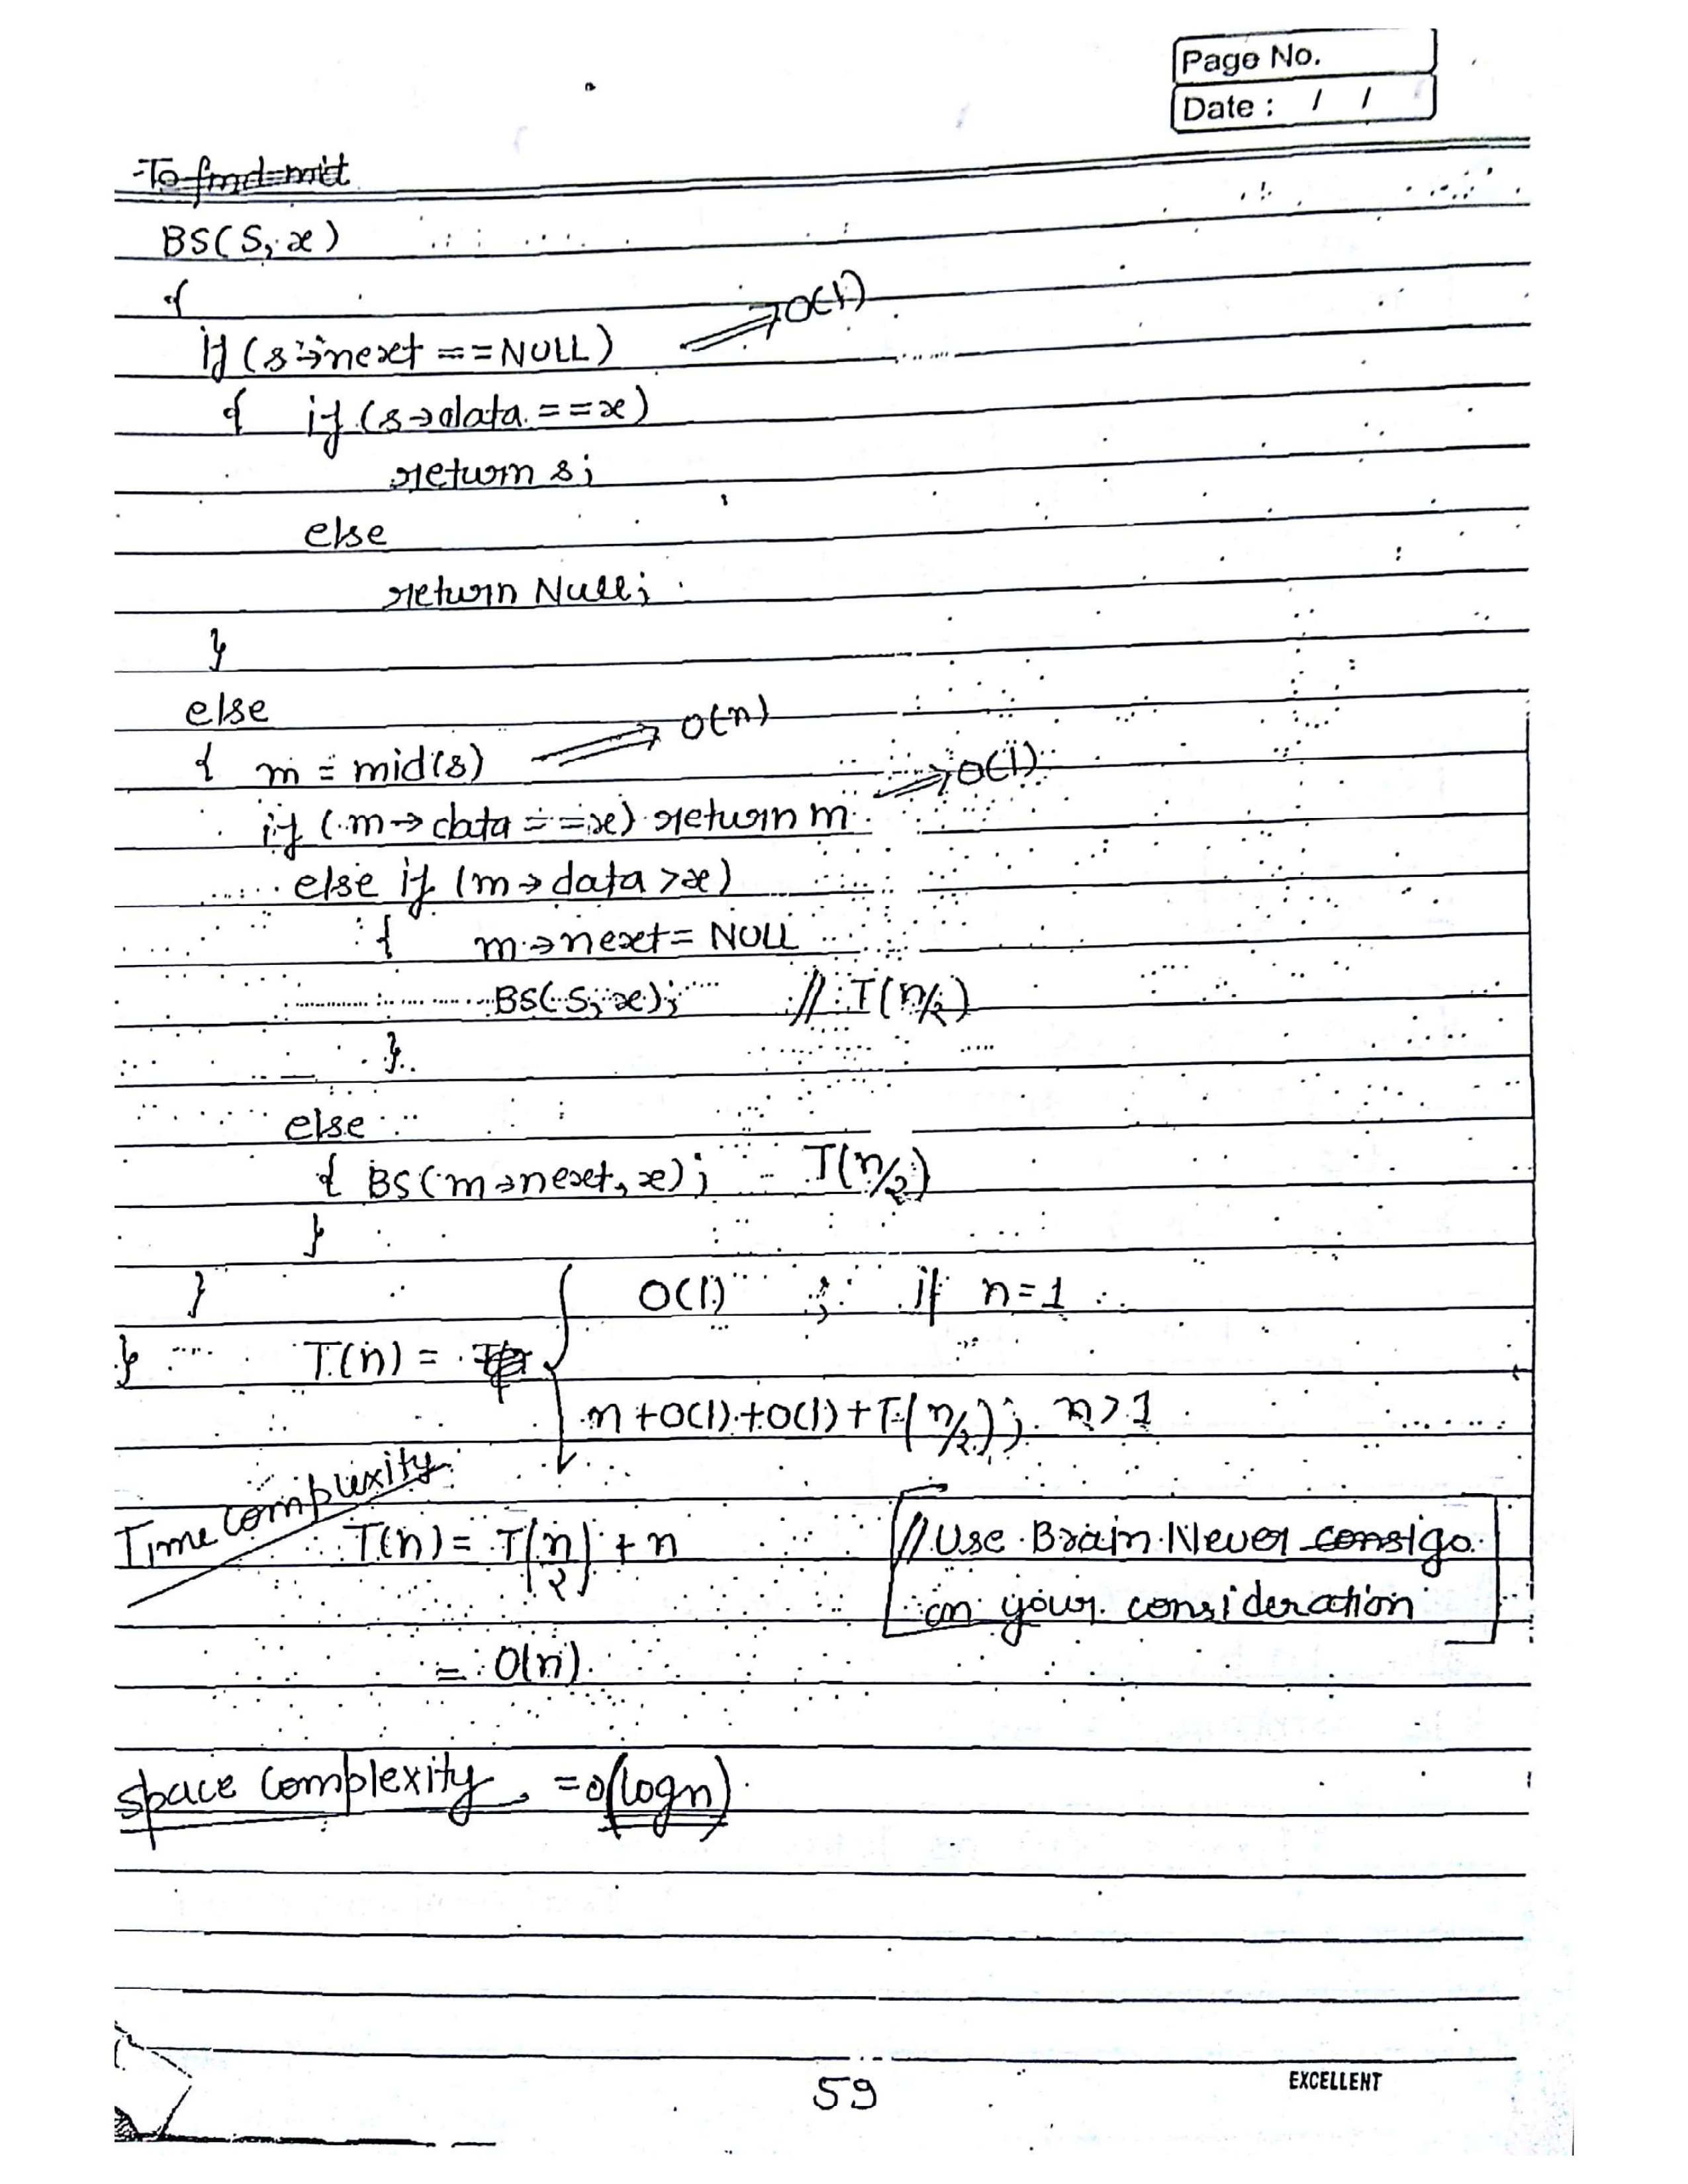 Page No.
Date : / /
To find mid
BS(S, x)
{
if (s→next == NULL) ⇒ O(1)
{ if (s→data == x)
return s;
else
return Null;
}
else
{ m = mid(s) ⇒ O(n)
if (m→data == x) return m ⇒ O(1)
else if (m→data > x)
{ m→next = NULL
BS(S, x); // T(n/2)
}
else
{ BS(m→next, x); T(n/2)
}
}
O(1) ; if n=1
} T(n) =
n + O(1) + O(1) + T(n/2); n>1
Time complexity
T(n) = T(n/2) + n
// Use Brain Never go
on your consideration
= O(n)
space complexity = O(log n)
59
EXCELLENT